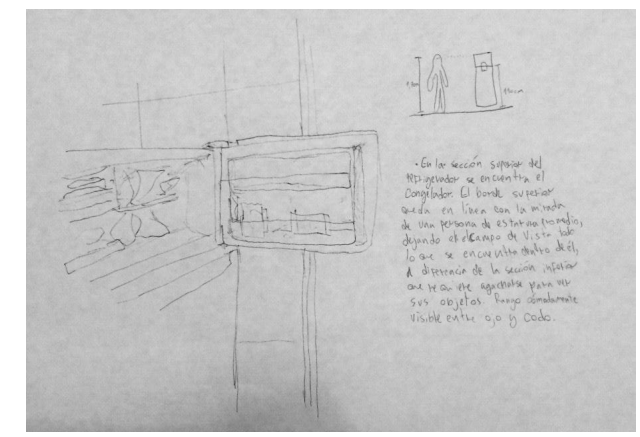 • En la sección superior del
refrigerador se encuentra el
Congelador. El borde superior
queda en línea con la mirada
de una persona de estatura promedio,
dejando el campo de vista todo
lo que se encuentra dentro de él,
A diferencia de la sección inferior
que requiere agacharse para ver
sus objetos. Rango comodamente
visible entre ojo y codo.